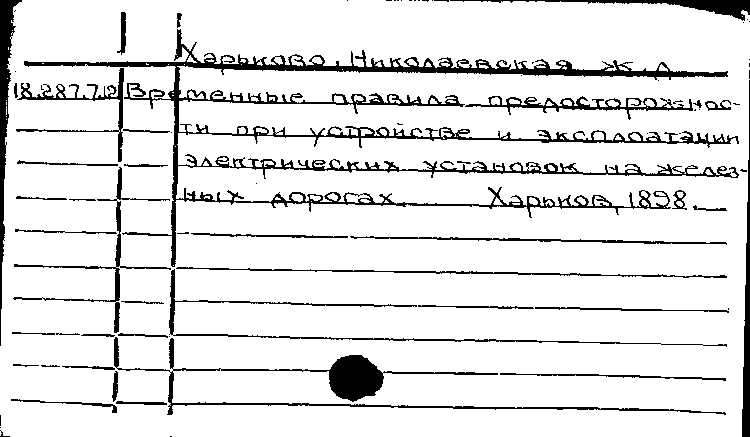 Харьково, Николаевская ж. д.
18.287.7.12 Временные правила предосторожнос-
ти при устройстве и эксплоатации
электрических установок на желез-
ных дорогах. Харьков, 1898.